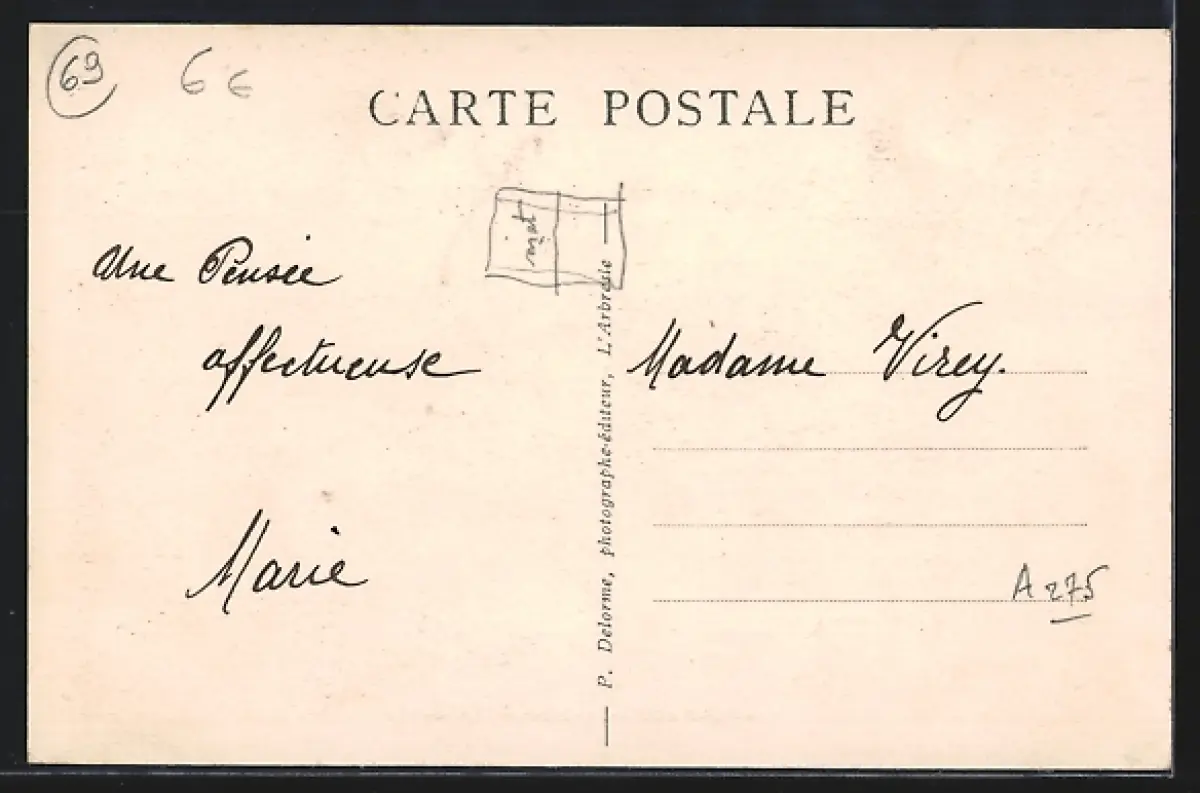 69
6 €
CARTE POSTALE
Une Pensée
affectueuse
Marie
P. Delorme, photographe-éditeur, L'Arbresle
Madame Virey.
A 275